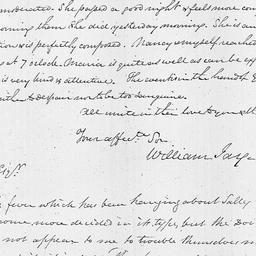 moderated. She passed a good night & feels more com
orning than she did yesterday morning. She is an
tion is perfectly composed. Nancy & myself reached
at 7 oclock. Maria is quite as well as can be ex
is very kind & attentive. The event is in the hand of G
either to despair nor to be too sanguine.
All unite in their love to you all
Your affecte. Son
William Jay
fever which has been hanging about Sally
come more decided in its type, but the Doc
not appear to me to trouble themselves m